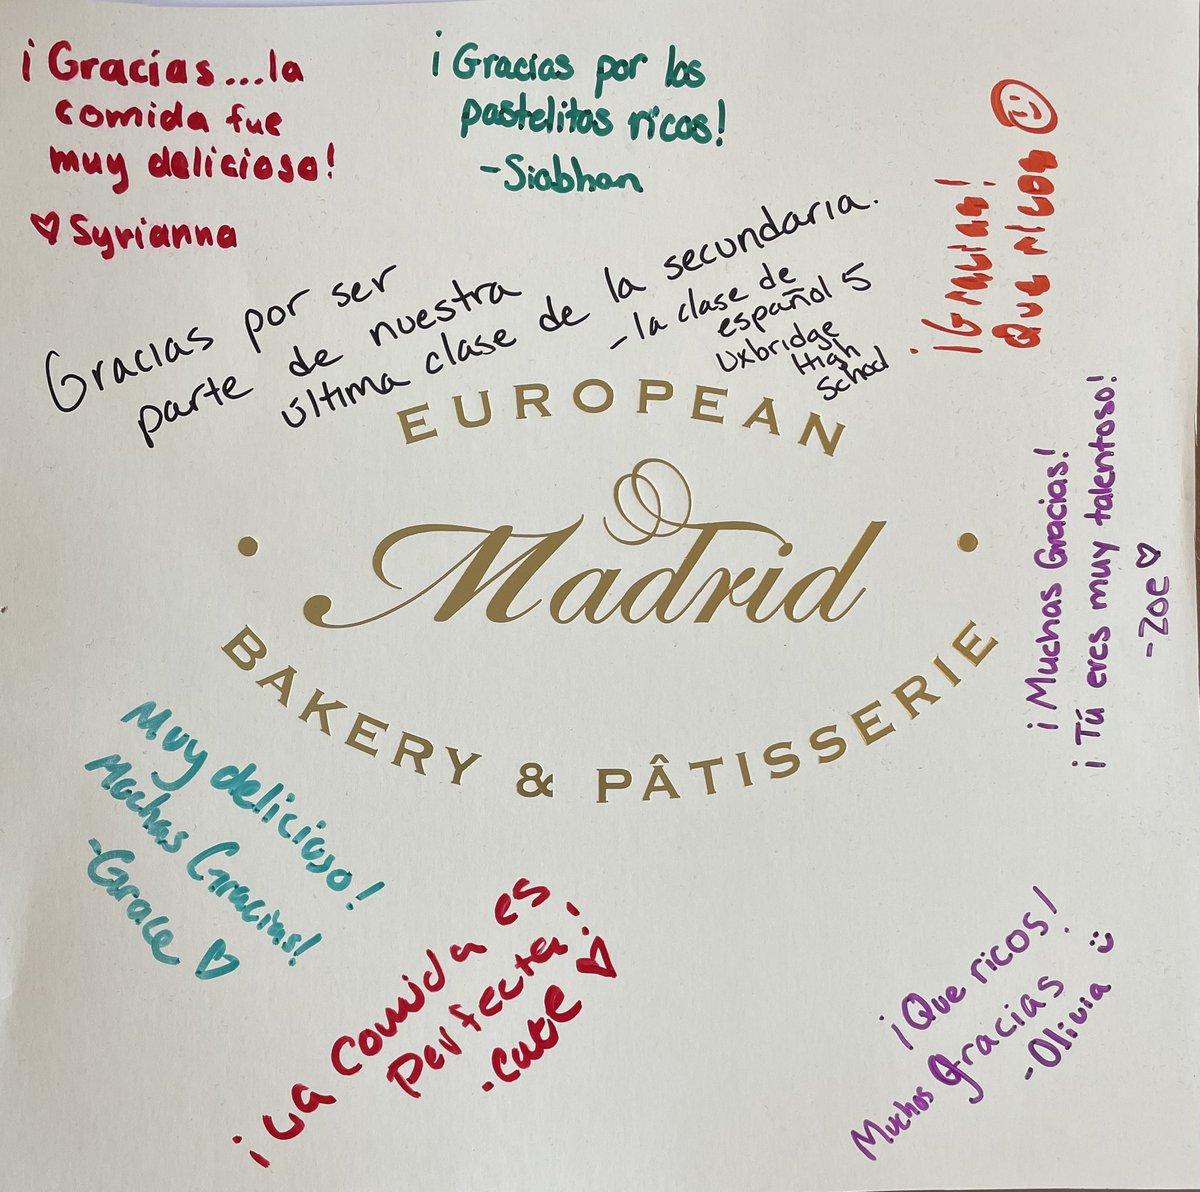 ¡Gracias...la
comida fue
muy delicioso!
♡ Syrianna
¡Gracias por los
pastelitos ricos!
-Siobhan
¡Gracias!
Que ricos ☺
Gracias por ser
parte de nuestra
última clase de la secundaria.
-la clase de
español 5
Uxbridge
High
School
EUROPEAN
Madrid
BAKERY & PÂTISSERIE
¡Muchas Gracias!
¡Tú eres muy talentoso!
-Zoe ♡
Muy delicioso!
Muchas Gracias!
-Grace ♡
¡La comida es
perfecta!
-Cate ♡
¡Que ricos!
Muchos gracias
-Olivia :)